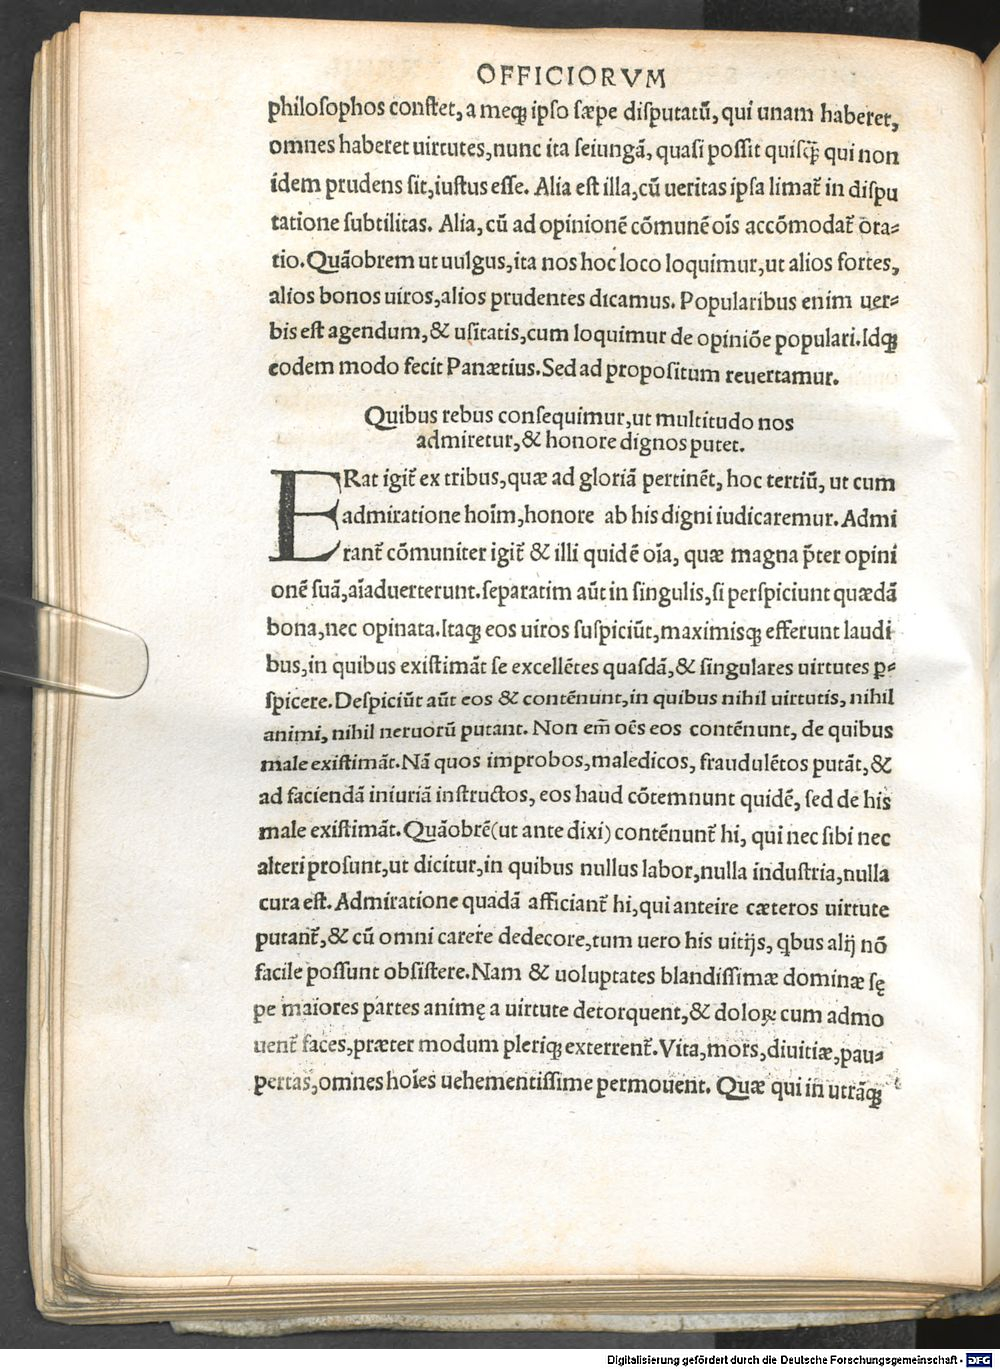 OFFICIORVM
philoſophos conſtet, a meqꝫ ipſo ſæpe diſputatū, qui unam haberet,
omnes haberet uirtutes, nunc ita ſeiungā, quaſi poſſit quiſq̃ qui non
idem prudens ſit, iuſtus eſſe. Alia eſt illa, cū ueritas ipſa limat̃ in diſpu
tatione ſubtilitas. Alia, cū ad opinionē cōmunē oīs accōmodat̃ ora⸗
tio. Quāobrem ut uulgus, ita nos hoc loco loquimur, ut alios fortes,
alios bonos uiros, alios prudentes dicamus. Popularibus enim uer⸗
bis eſt agendum, & uſitatis, cum loquimur de opiniōe populari. Idqꝫ
eodem modo fecit Panætius. Sed ad propoſitum reuertamur.
Quibus rebus conſequimur, ut multitudo nos
admiretur, & honore dignos putet.
ERat igit̃ ex tribus, quæ ad gloriā pertinēt, hoc tertiū, ut cum
admiratione hoīm, honore ab his digni iudicaremur. Admi
rant̃ cōmuniter igit̃ & illi quidē oīa, quæ magna p̃ter opini
onē ſuā, aīaduerterunt. ſeparatim aūt in ſingulis, ſi perſpiciunt quædā
bona, nec opinata. Itaqꝫ eos uiros ſuſpiciūt, maximisqꝫ efferunt laudi
bus, in quibus exiſtimāt ſe excellētes quaſdā, & ſingulares uirtutes ꝑ⸗
ſpicere. Deſpiciūt aūt eos & contēnunt, in quibus nihil uirtutis, nihil
animi, nihil neruorū putant. Non em̄ oēs eos contēnunt, de quibus
male exiſtimāt. Nā quos improbos, maledicos, fraudulētos putāt, &
ad faciendā iniuriā inſtructos, eos haud cōtemnunt quidē, ſed de his
male exiſtimāt. Quāobrē (ut ante dixi) contēnunt̃ hi, qui nec ſibi nec
alteri proſunt, ut dicitur, in quibus nullus labor, nulla induſtria, nulla
cura eſt. Admiratione quadā afficiant̃ hi, qui anteire cæteros uirtute
putant̃, & cū omni carere dedecore, tum uero his uitijs, qbus alij nō
facile poſſunt obſiſtere. Nam & uoluptates blandiſſimæ dominæ ſę
pe maiores partes animę a uirtute detorquent, & doloꝝ cum admo
uent̃ faces, præter modum pleriqꝫ exterrent̃. Vita, mors, diuitiæ, pau⸗
pertas, omnes hoīes uehementiſſime permouent. Quæ qui in utrāqꝫ
Digitalisierung gefördert durch die Deutsche Forschungsgemeinschaft - DFG